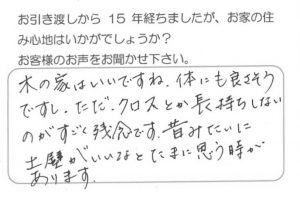 お引き渡しから 15 年経ちましたが、お家の住
み心地はいかがでしょうか？
お客様のお声をお聞かせ下さい。
木の家はいいですね。体にも良さそう
ですし。ただ、クロスとか長持ちしない
のがすごく残念です。昔みたいに
土壁がいいなとたまに思う時が
あります。